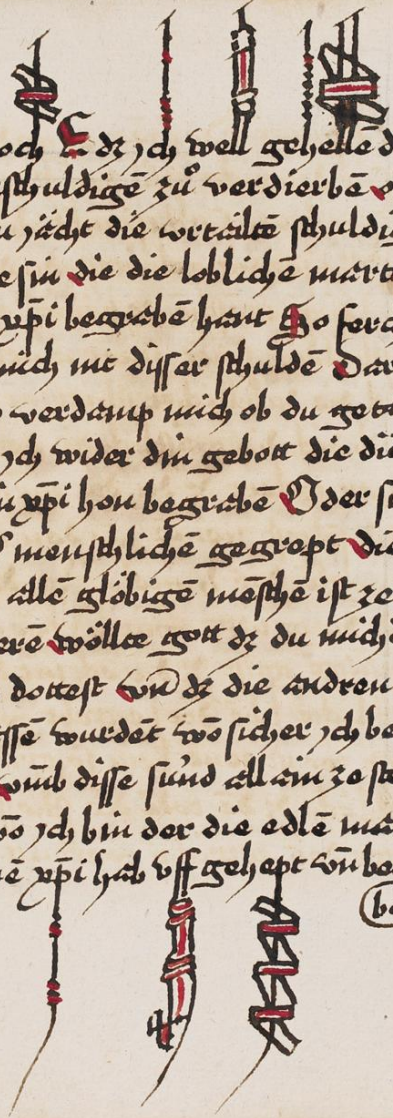 och E dz ych well gehellē d
schuldigē zů verdierbē
u jächt die vrtailtē schuldi
e sin die die loblichē mart
xp̄i begrabē hant So fer
mich nit disser schuldē Dar
verdamp mich ob du get
ych wider din gebott die die
xp̄i hon begrabē Oder s
menschlichē gegrept die
allē glöbigē mēschē ist ze
erē wöllte gott dz du mich
dottest vn̄ dz die andren
ssē wurdēt wō sicher ych be
vm̄b disse sünd allain ze st
ych bin der die edlē ma
ē xp̄i hab vff gehept vn̄ be